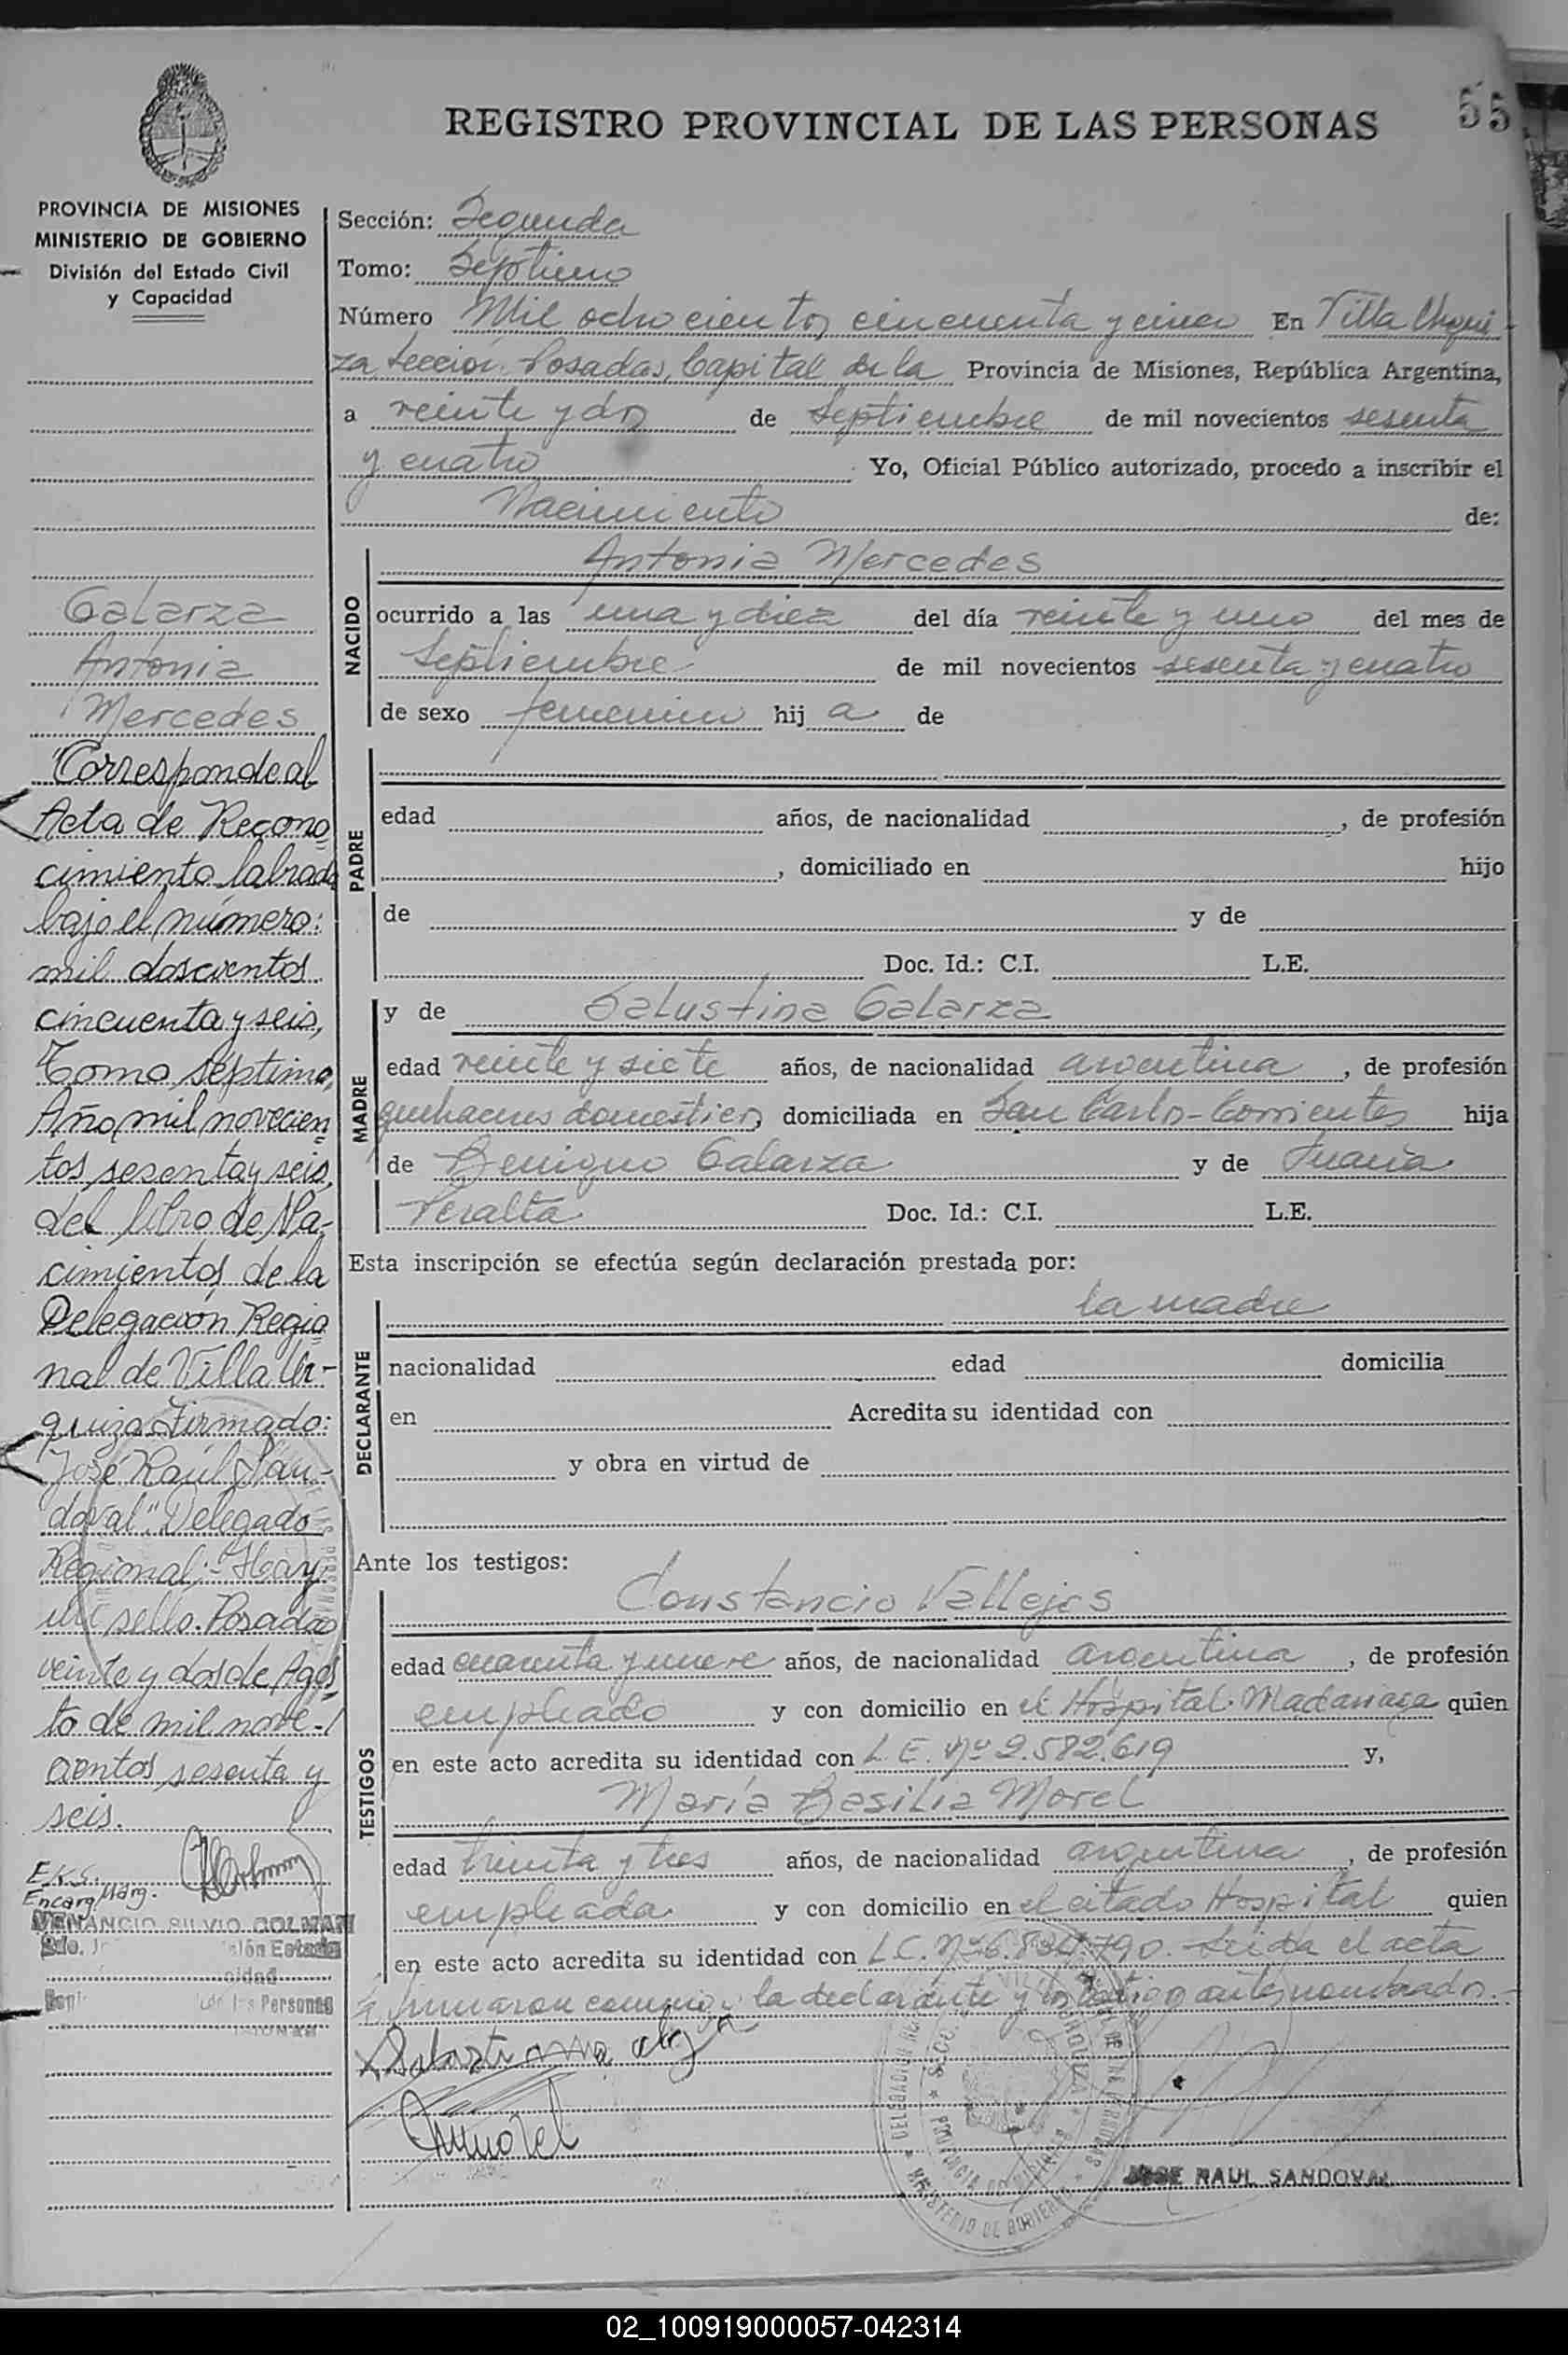 55
REGISTRO PROVINCIAL DE LAS PERSONAS
PROVINCIA DE MISIONES
MINISTERIO DE GOBIERNO
División del Estado Civil
y Capacidad
Galarza
Antonia
Mercedes
"Corresponde al
Acta de Recono
cimiento labrada
bajo el número:
mil doscientos
cincuenta y seis,
Tomo séptimo,
Año mil novecien
tos sesenta y seis,
del libro de Na-
cimientos de la
Delegación Regio
nal de Villa Ur-
quiza Firmado:
José Raúl San-
doval". Delegado
Regional.- Hay
un sello. Posadas
veinte y dos de Agos
to de mil nove-
cientos sesenta y
seis.
E.K.S.
Encarg. Marg.
VENANCIO SILVIO COLMAN
Sección: Segunda
Tomo: Séptimo
Número Mil ochocientos cincuenta y cinco En Villa Urqui-
za Sección Posadas, Capital de la Provincia de Misiones, República Argentina,
a veinte y dos de Septiembre de mil novecientos sesenta
y cuatro Yo, Oficial Público autorizado, procedo a inscribir el
Nacimiento de:
NACIDO
Antonia Mercedes
ocurrido a las una y diez del día veinte y uno del mes de
Septiembre de mil novecientos sesenta y cuatro
de sexo femenino hij a de
PADRE
edad años, de nacionalidad , de profesión
, domiciliado en hijo
de y de
Doc. Id.: C.I. L.E.
MADRE
y de Salustina Galarza
edad veinte y siete años, de nacionalidad argentina , de profesión
quehaceres domésticos domiciliada en San Carlos-Corrientes hija
de Benigno Galarza y de Juana
Peralta Doc. Id.: C.I. L.E.
Esta inscripción se efectúa según declaración prestada por:
la madre
DECLARANTE
nacionalidad edad domicilia
en Acredita su identidad con
y obra en virtud de
Ante los testigos:
TESTIGOS
Constancio Vallejos
edad cuarenta y nueve años, de nacionalidad argentina , de profesión
empleado y con domicilio en el Hospital Madariaga quien
en este acto acredita su identidad con L.E. Nº 2.582.619 y,
María Basilia Morel
edad treinta y tres años, de nacionalidad argentina , de profesión
empleada y con domicilio en el citado Hospital quien
en este acto acredita su identidad con L.C. Nº 6.834.790. Leida el acta
firmaron conmigo la declarante y los testigos antes nombrados.-
JOSE RAUL SANDOVAL
02_100919000057-042314